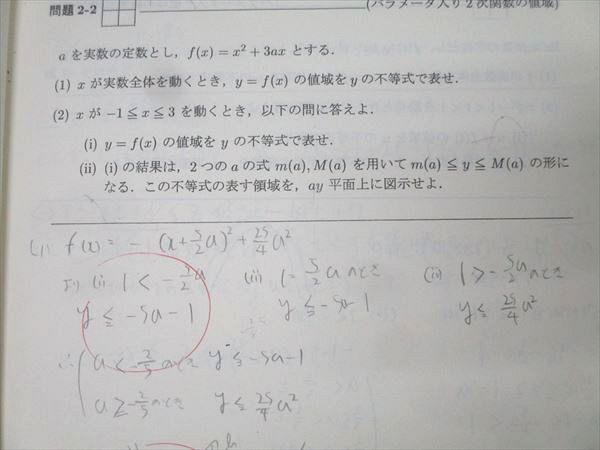 問題 2-2
(パラメータ入り2次関数の値域)
a を実数の定数とし，f(x) = x² + 3ax とする．
(1) x が実数全体を動くとき，y = f(x) の値域を y の不等式で表せ．
(2) x が −1 ≦ x ≦ 3 を動くとき，以下の問に答えよ．
(i) y = f(x) の値域を y の不等式で表せ．
(ii) (i) の結果は，2 つの a の式 m(a), M(a) を用いて m(a) ≦ y ≦ M(a) の形に
なる．この不等式の表す領域を，ay 平面上に図示せよ．
(1) f(x) = − (x + 5/2 a)² + 25/4 a²
より (i) 1 < − 5/2 a (ii) 1 = − 5/2 a のとき (iii) 1 > − 5/2 a のとき
y ≦ −5a − 1 y ≦ −5a − 1 y ≦ 25/4 a²
∴ a < − 2/5 のとき y ≦ −5a − 1
a ≧ − 2/5 のとき y ≦ 25/4 a²